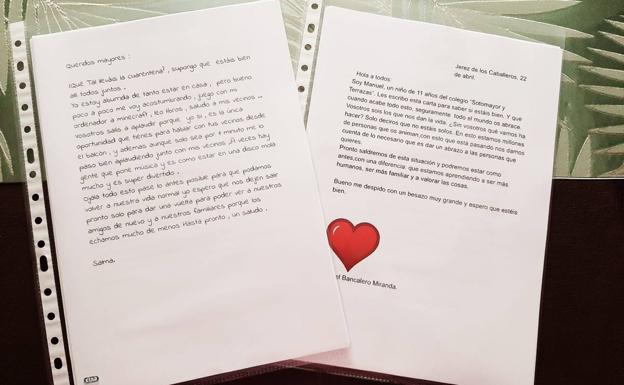 Queridos mayores :
¡QUÉ TAl lleváis la cuarentena? , supongo que estáis bien
allí todos juntos .
Yo estoy aburrida de tanto estar en casa , pero bueno
poco a poco me voy acostumbrando , juego con mi
ordenador a minecraft , leo libros , saludo a mis vecinos ...
vosotros salís a aplaudir porque yo sí , es la única
oportunidad que tienes para hablar con tus vecinos desde
el balcón , y además aunque solo sea por 1 minuto me lo
paso bien aplaudiendo junto con mis vecinos ¡A veces hay
gente que pone música y es como estar en una disco mola
mucho y es super divertido .
Ojalá todo esto pase lo antes posible para que podamos
volver a nuestra vida normal yo espero que nos dejen salir
pronto solo para dar una vuelta para poder ver a nuestros
amigos de nuevo y a nuestros familiares porque los
echamos mucho de menos Hasta pronto , un saludo .
Sama.
Jerez de los Caballeros, 22
de abril.
Hola a todos:
Soy Manuel, un niño de 11 años del colegio "Sotomayor y
Terrazas". Les escribo esta carta para saber si estáis bien. Y que
cuando acabe todo esto, seguramente todo el mundo os abrace.
Vosotros sois los que nos dan la vida. ¿Sin vosotros qué vamos ha
hacer? Solo deciros que no estáis solos. En esto estamos millones
de personas que os animan,con esto que está pasando nos damos
cuenta de lo necesario que es dar un abrazo a las personas que
quieres.
Pronto saldremos de esta situación y podremos estar como
antes,con una diferencia que estamos aprendiendo a ser más
humanos, ser más familiar y a valorar las cosas.
Bueno me despido con un besazo muy grande y espero que estéis
bien.
el Bancalero Miranda.